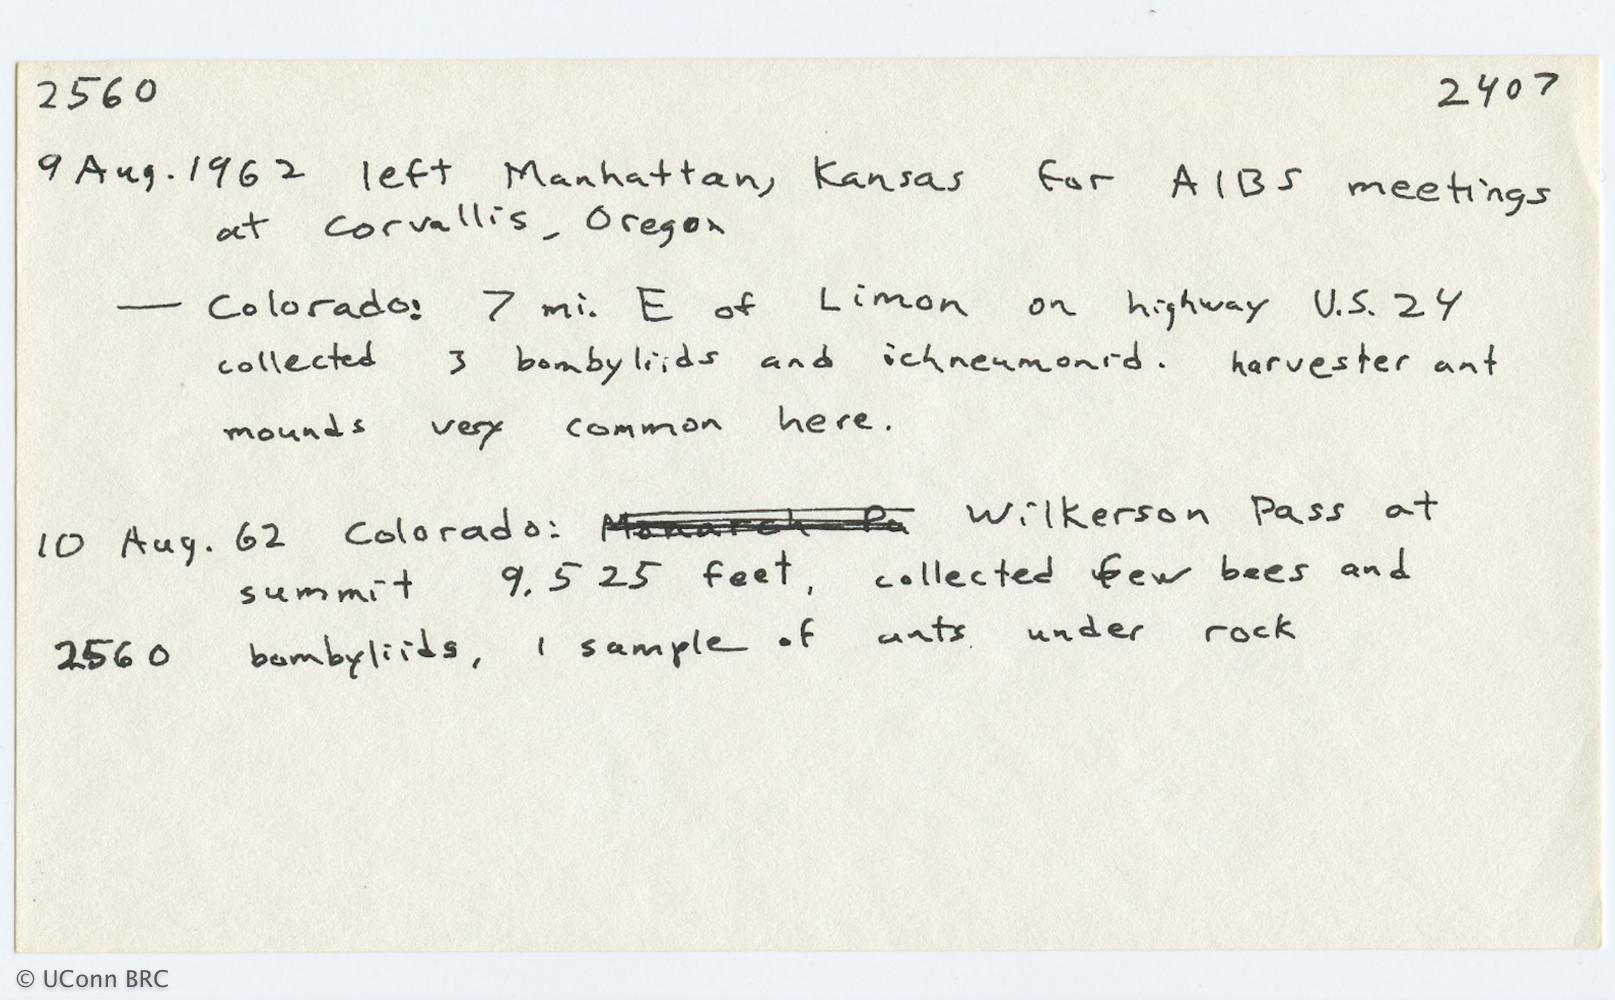 2560 2407
9 Aug. 1962 left Manhattan, Kansas for AIBS meetings
at Corvallis, Oregon
— Colorado: 7 mi. E of Limon on highway U.S. 24
collected 3 bombyliids and ichneumonid. harvester ant
mounds very common here.
10 Aug. 62 Colorado: Monarch Pa Wilkerson Pass at
summit 9,525 feet, collected few bees and
2560 bombyliids, 1 sample of ants under rock
© UConn BRC